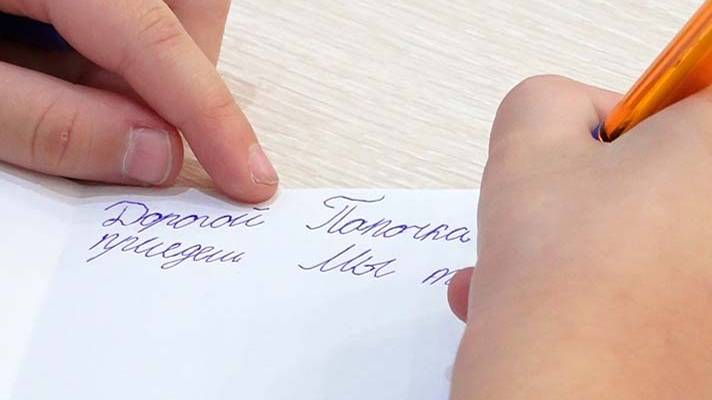 Дорогой Папочка
приедеш. Мы т